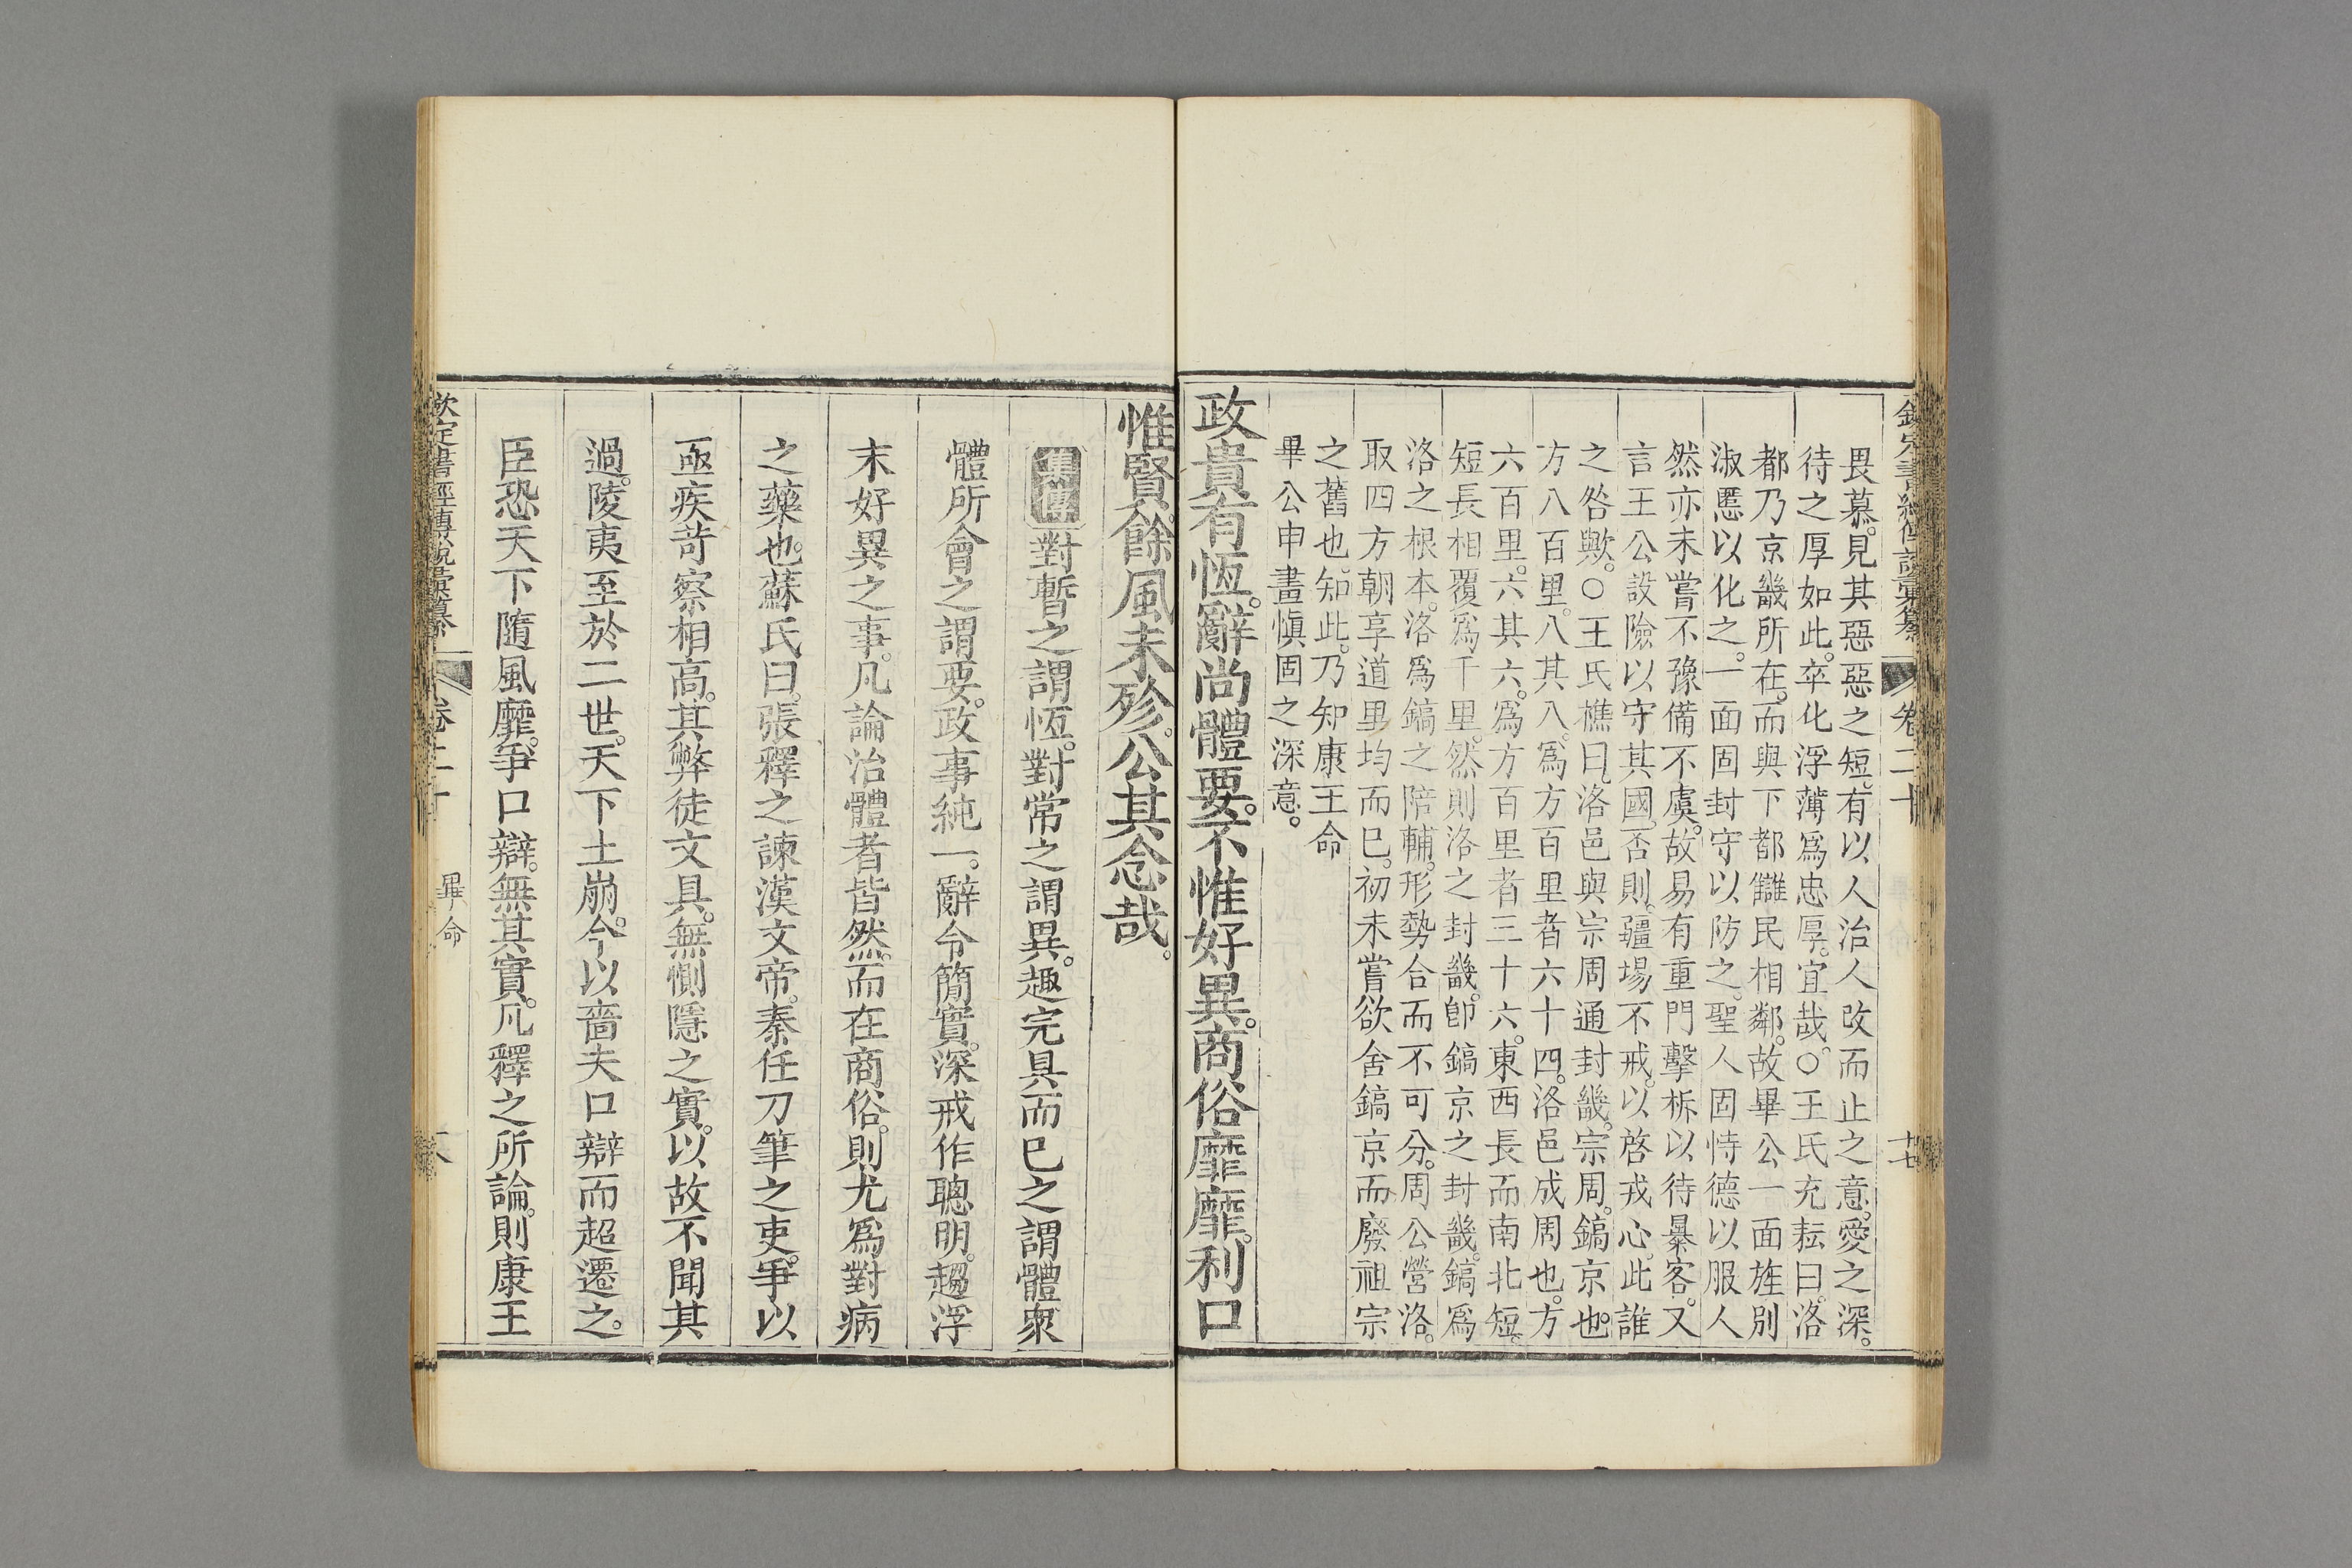 欽定書經傳說彙纂 卷二十 十七
畏慕。見其惡惡之短。有以人治人改而止之意。愛之深。
待之厚如此。卒化浮薄爲忠厚。宜哉。○王氏充耘曰。洛
都乃京畿所在。而與下都讎民相鄰。故畢公一面旌別
淑慝以化之。一面固封守以防之。聖人固恃德以服人
然亦未嘗不豫備不虞。故易有重門擊柝以待暴客。又
言王公設險以守其國否則。疆場不戒。以啓戎心。此誰
之咎歟。○王氏樵曰。洛邑與宗周通封畿。宗周。鎬京也。
方八百里。八其八。爲方百里者六十四。洛邑成周也。方
六百里。六其六。爲方百里者三十六。東西長而南北短。
短長相覆爲千里。然則洛之封畿。卽鎬京之封畿。鎬爲
洛之根本。洛爲鎬之陪輔。形勢合而不可分。周公營洛。
取四方朝享道里均而已。初未嘗欲舍鎬京而廢祖宗
之舊也。知此。乃知康王命
畢公申畫愼固之深意。
政貴有恆。辭尚體要。不惟好異。商俗靡靡。利口
惟賢。餘風未殄。公其念哉。
集傳 對暫之謂恆。對常之謂異。趣完具而已之謂體衆
體所會之謂要。政事純一。辭令簡實。深戒作聰明。趨浮
末好異之事。凡論治體者皆然。而在商俗。則尤爲對病
之藥也。蘇氏曰。張釋之諫漢文帝。秦任刀筆之吏。爭以
亟疾苛察相高。其弊徒文具。無惻隱之實。以故不聞其
過。陵夷至於二世。天下土崩。今以嗇夫口辯而超遷之。
臣恐天下隨風靡。爭口辯。無其實。凡釋之所論。則康王
欽定書經傳說彙纂 卷二十 畢命